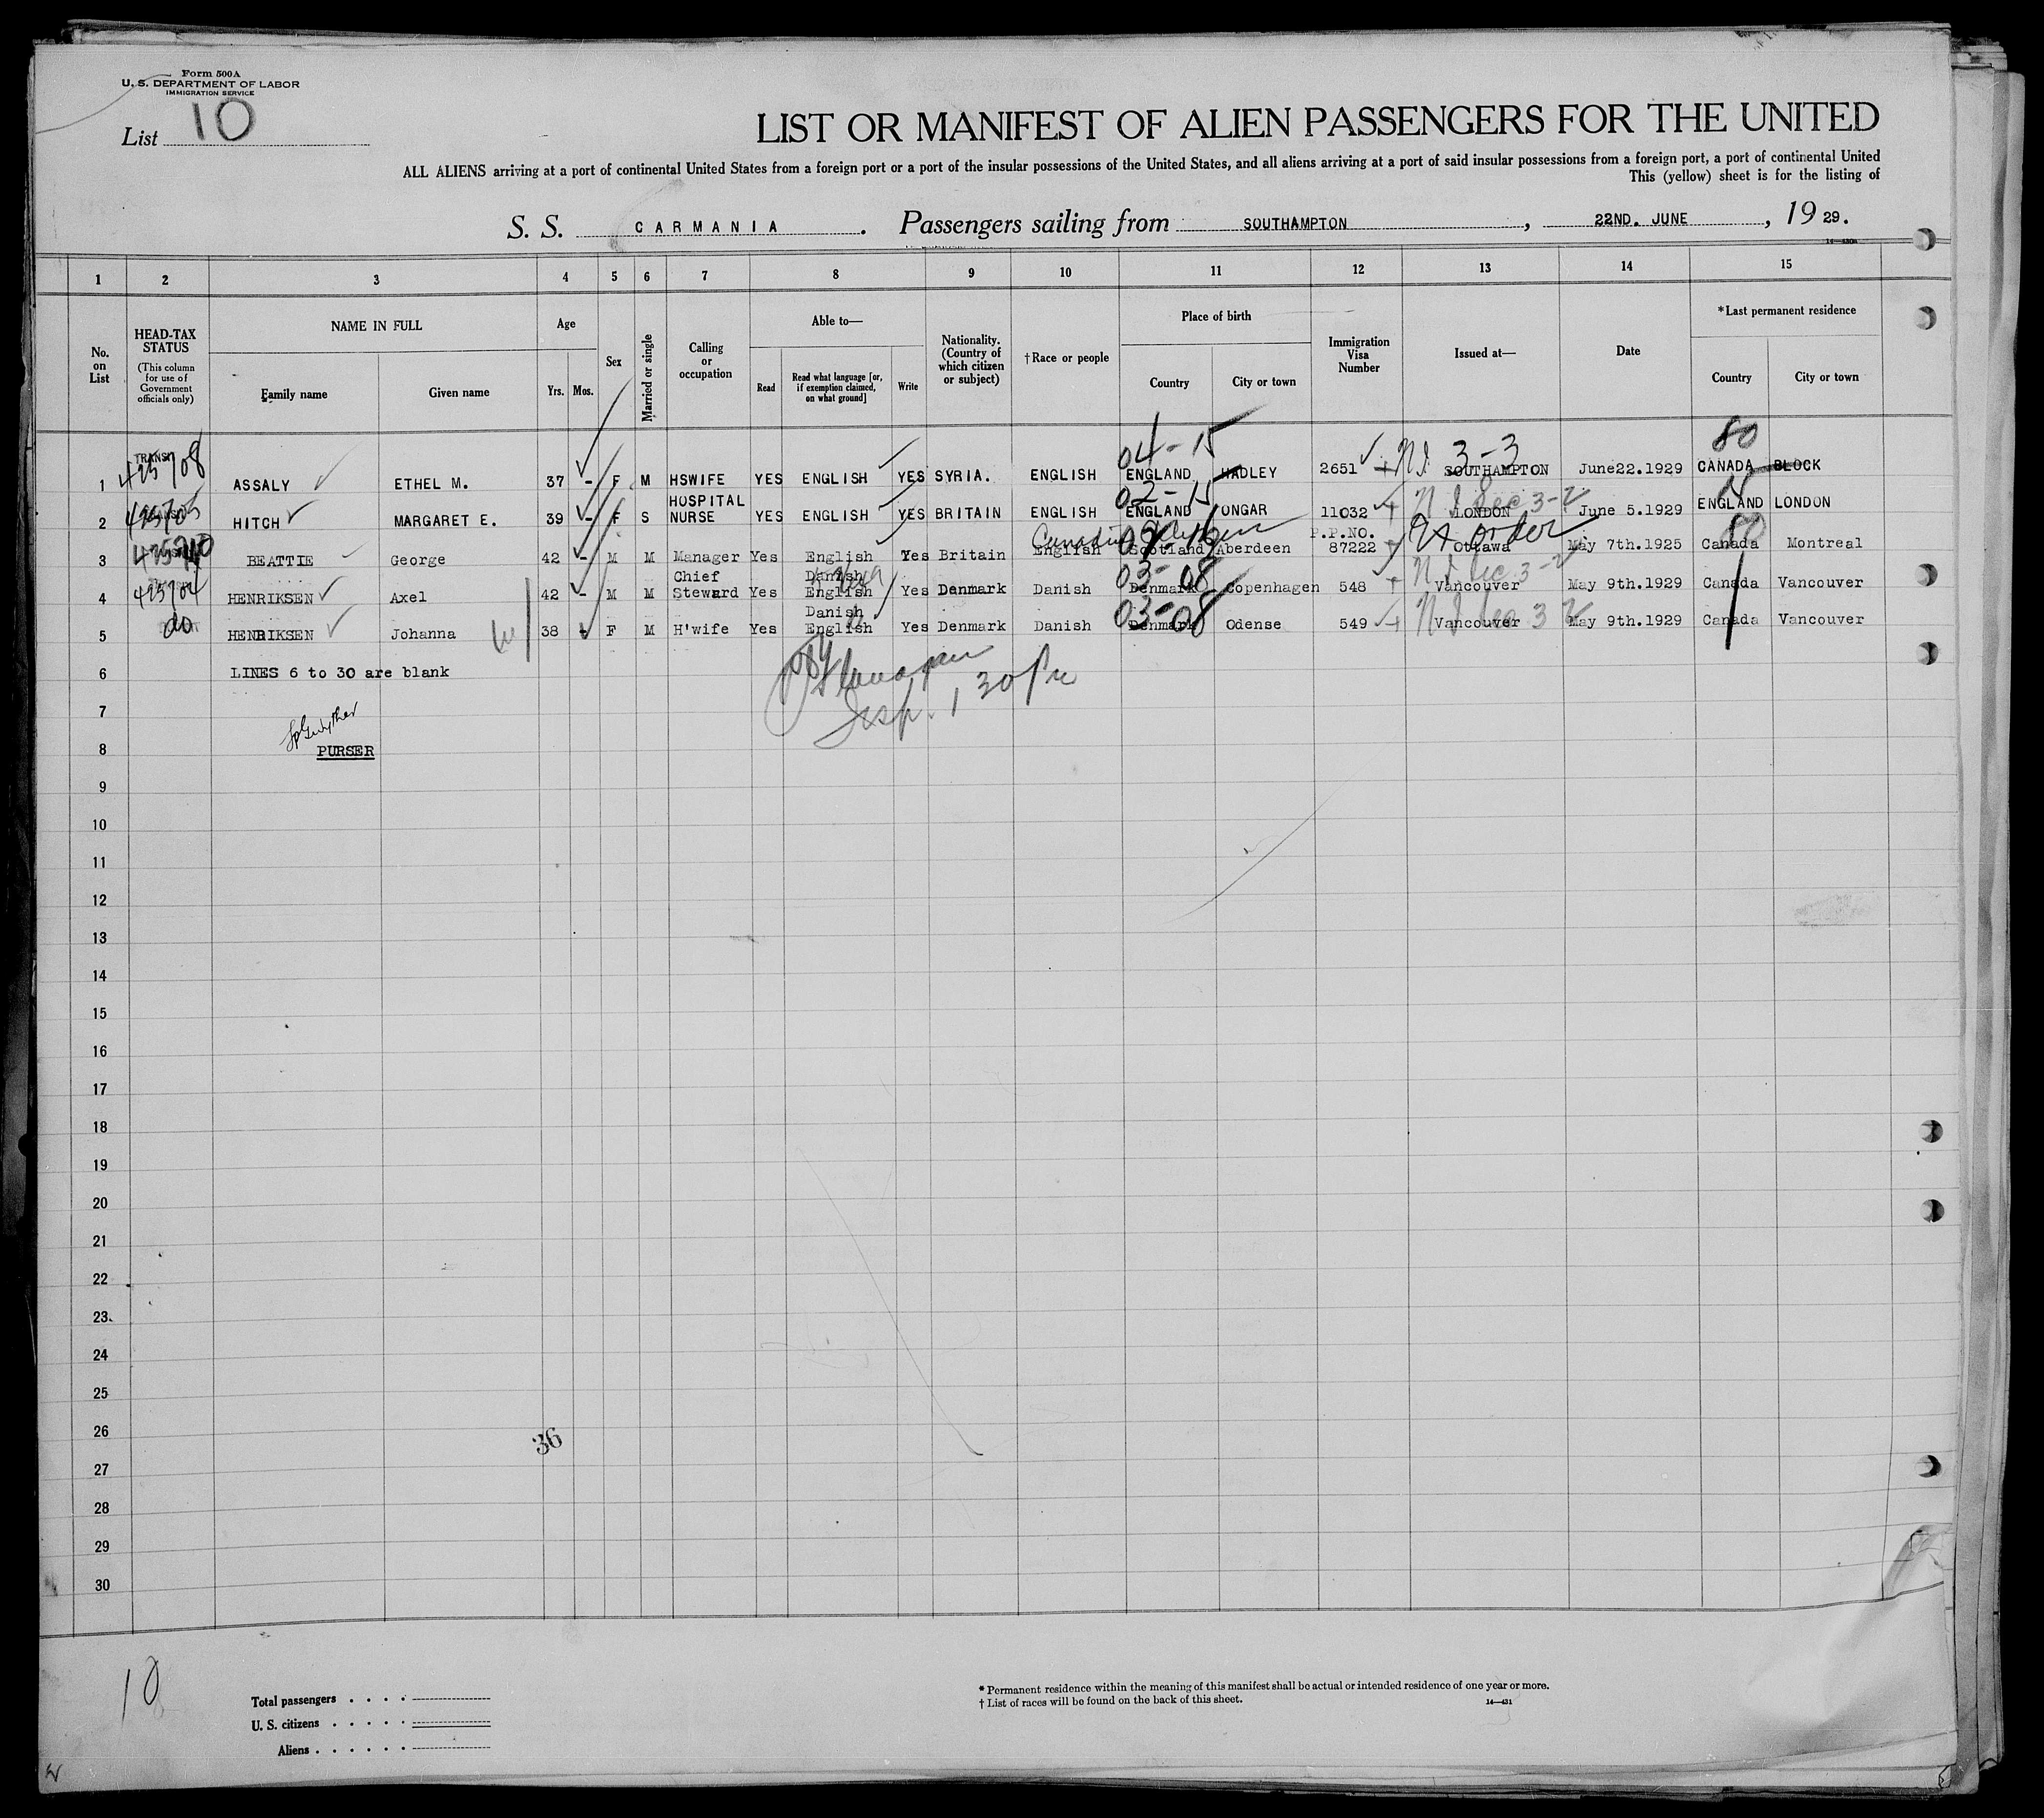 Form 500A
U. S. DEPARTMENT OF LABOR
IMMIGRATION SERVICE
List 10
LIST OR MANIFEST OF ALIEN PASSENGERS FOR THE UNITED
ALL ALIENS arriving at a port of continental United States from a foreign port or a port of the insular possessions of the United States, and all aliens arriving at a port of said insular possessions from a foreign port, a port of continental United
This (yellow) sheet is for the listing of
S. S. CARMANIA. Passengers sailing from SOUTHAMPTON, 22ND. JUNE, 19 29.
1 2 3 4 5 6 7 8 9 10 11 12 13 14 15
No. on List
HEAD-TAX STATUS
(This column for use of Government officials only)
NAME IN FULL
Family name
Given name
Age
Yrs. Mos.
Sex
Married or single
Calling or occupation
Able to—
Read
Read what language [or, if exemption claimed, on what ground]
Write
Nationality. (Country of which citizen or subject)
†Race or people
Place of birth
Country
City or town
Immigration Visa Number
Issued at—
Date
*Last permanent residence
Country
City or town
04-15 3-3 80
1 TRANSIT 425708 ASSALY ETHEL M. 37 - F M HSWIFE YES ENGLISH YES SYRIA. ENGLISH ENGLAND HADLEY 2651 SOUTHAMPTON June22.1929 CANADA BLOCK
02-15
2 HITCH MARGARET E. 39 - F S HOSPITAL NURSE YES ENGLISH YES BRITAIN ENGLISH ENGLAND ONGAR 11032 LONDON June 5.1929 ENGLAND LONDON
3 BEATTIE George 42 - M M Manager Yes English Yes Britain English Scotland Aberdeen P.P.NO. 87222 Ottawa May 7th.1925 Canada Montreal
03-08
4 425704 HENRIKSEN Axel 42 - M M Chief Steward Yes Danish English Yes Denmark Danish Denmark Copenhagen 548 Vancouver May 9th.1929 Canada Vancouver
03-08
5 do HENRIKSEN Johanna 38 - F M H'wife Yes Danish English Yes Denmark Danish Denmark Odense 549 Vancouver May 9th.1929 Canada Vancouver
6 LINES 6 to 30 are blank
7
8 PURSER
9
10
11
12
13
14
15
16
17
18
19
20
21
22
23
24
25
26
36
27
28
29
30
10
Total passengers
U. S. citizens
Aliens
* Permanent residence within the meaning of this manifest shall be actual or intended residence of one year or more.
† List of races will be found on the back of this sheet.
14—431